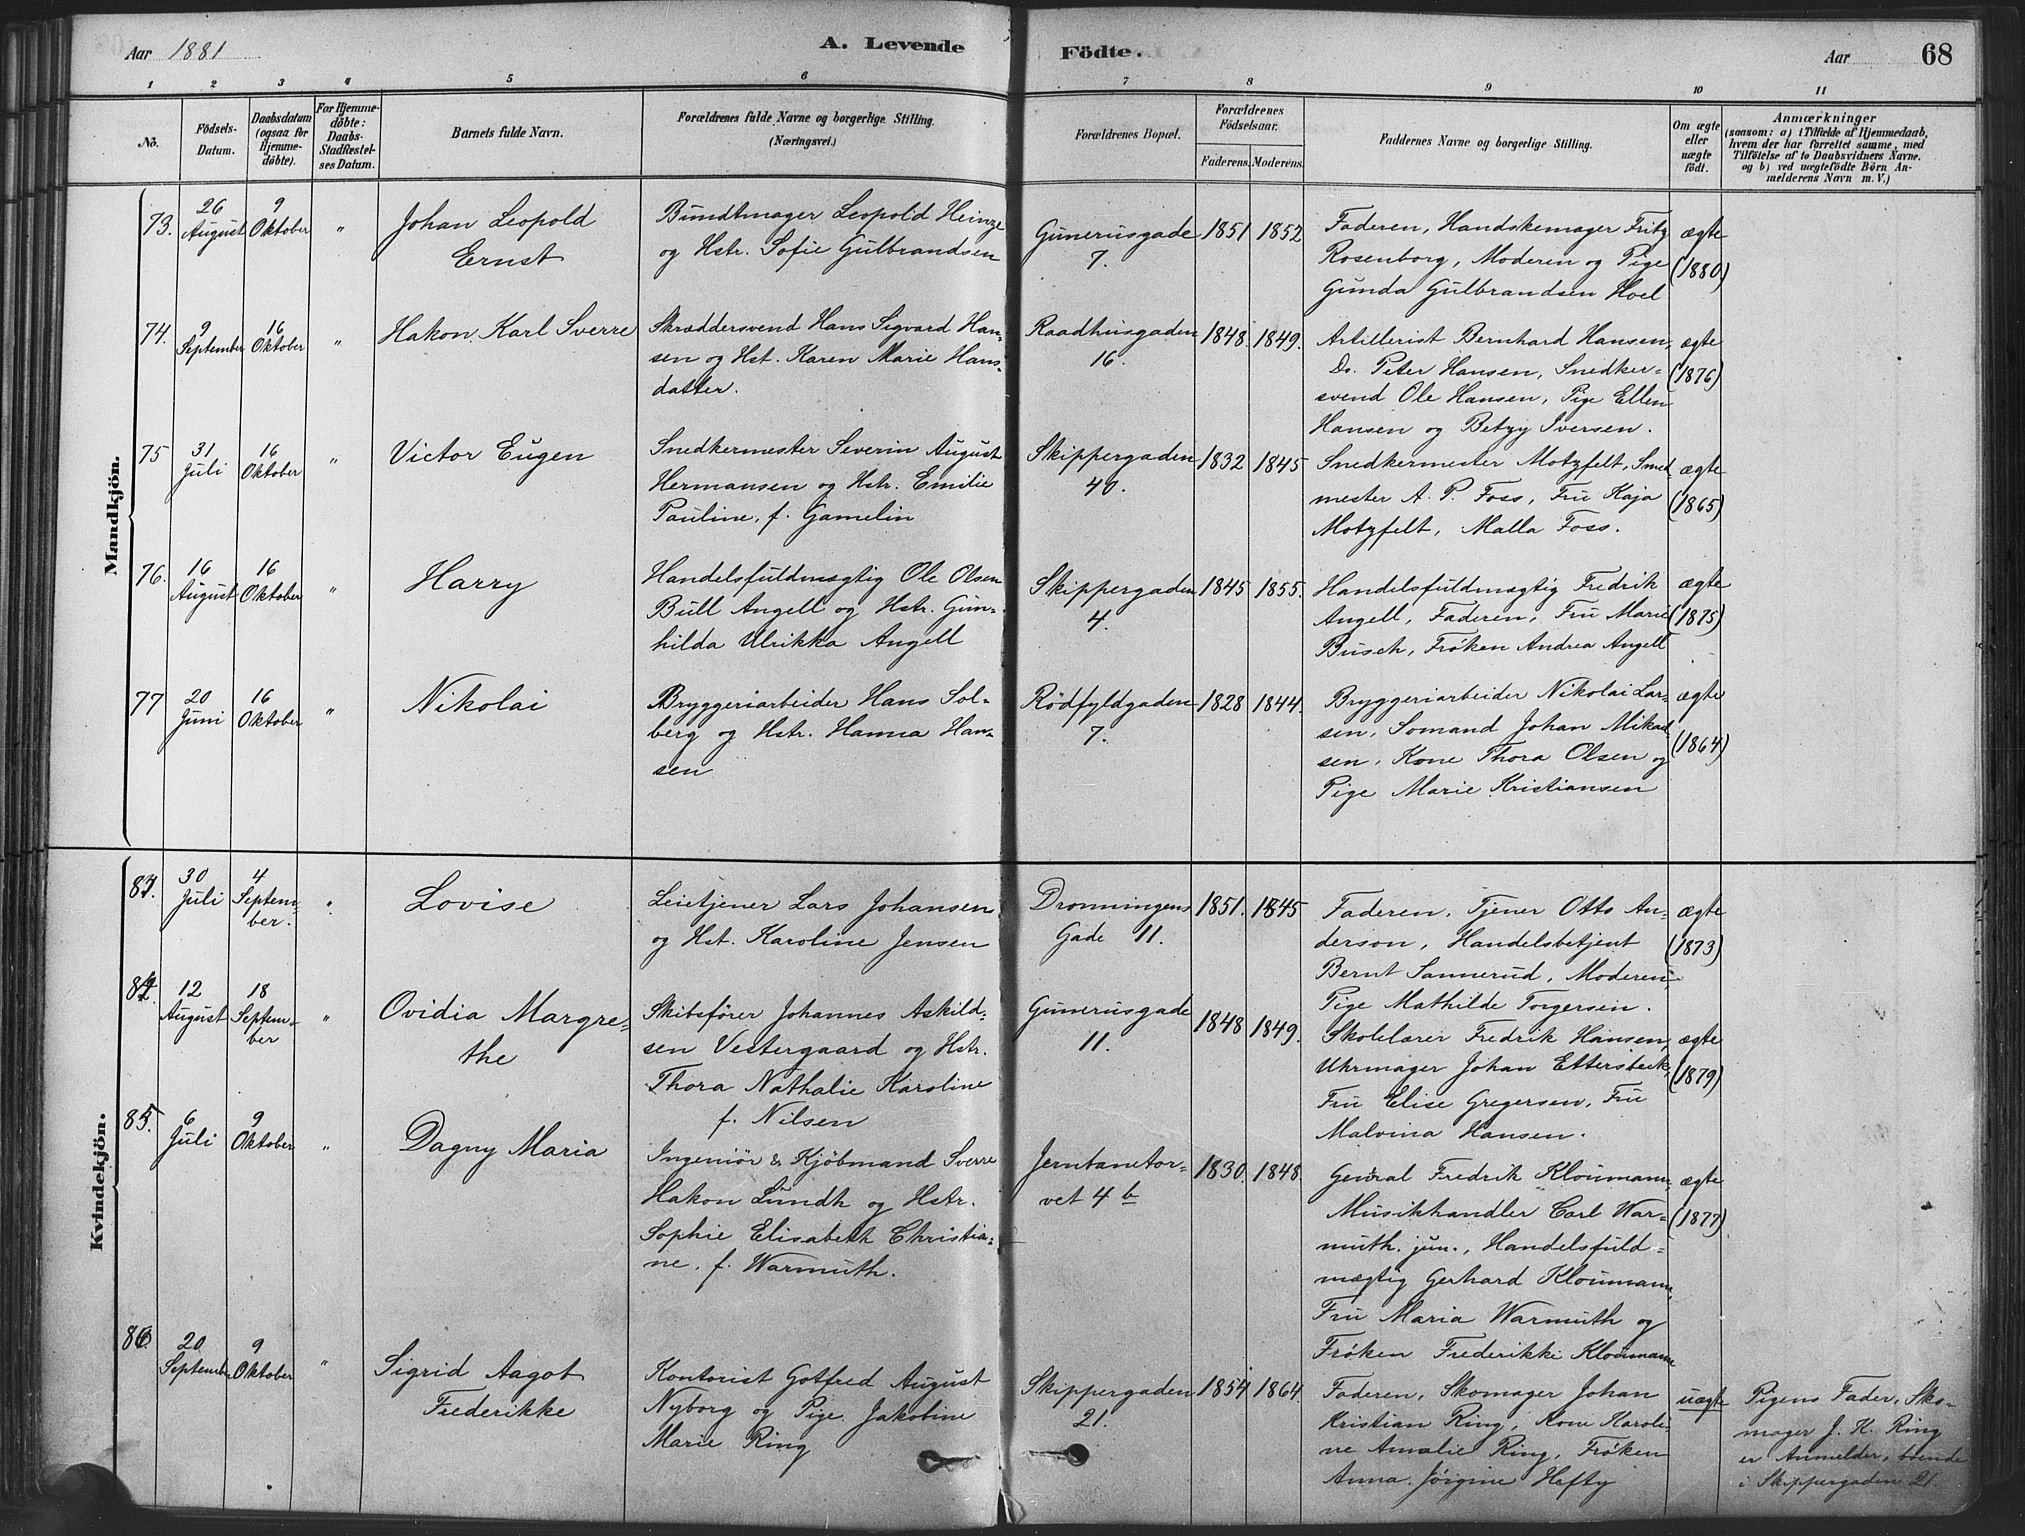 Aar 1881
A. Levende Födte.
Aar
68
1 2 3 4 5 6 7 8 9 10 11
No.
Födsels-Datum.
Daabsdatum (ogsaa for Hjemmedöbte).
For Hjemmedöbte: Daabs-Stadfestelses Datum.
Barnets fulde Navn.
Forældrenes fulde Navne og borgerlige Stilling.
(Næringsvei.)
Forældrenes Bopæl.
Forældrenes Födselsaar.
Faderens. Moderens.
Faddernes Navne og borgerlige Stilling.
Om ægte eller uægte födt.
Anmærkninger
(saasom: a) i Tilfælde af Hjemmedaab,
hvem der har forrettet samme, med
Tilföielse af to Daabsvidners Navne.
og b) ved uægtefödte Börn Anmelderens Navn m. V.)
Mandkjön.
73. 26 August 9 Oktober "
Johan Leopold
Ernst
Bundtmager Leopold Heinze
og Hstr. Sofie Gulbrandsen
Gunerusgade
7.
1851 1852
Faderen, Handskemager Fritz
Rosenborg, Moderen og Pige
Gunda Gulbrandsen Hoel
ægte
(1880)
74. 9 September 16 Oktober "
Hakon Karl Sverre
Skræddersvend Hans Sigvard Han-
sen og Hst. Karen Marie Hans-
datter.
Raadhusgaden
16.
1848. 1849.
Artillerist Bernhard Hansen,
Do. Peter Hansen, Snedker-
svend Ole Hansen, Pige Ellen
Hansen og Betzy Iversen.
ægte
(1876)
75 31 Juli 16 Oktober "
Victor Eugen
Snedkermester Severin August
Hermansen og Hstr. Emilie
Pauline, f. Gamelin
Skippergaden
40.
1832 1845
Snedkermester Motzfelt, Smed-
mester A. P. Foss, Fru Kaja
Motzfelt, Malla Foss.
ægte
(1865)
76. 16 August 16 Oktober "
Harry
Handelsfuldmægtig Ole Olsen
Bull Angell og Hstr. Gun-
hilda Ulrikka Angell
Skippergaden
4.
1845 1855.
Handelsfuldmægtig Fredrik
Angell, Faderen, Fru Marie
Busch, Frøken Andrea Angell
ægte
(1875)
77 20 Juni 16 Oktober "
Nikolai
Bryggeriarbeider Hans Sol-
berg og Hstr. Hanna Han-
sen
Rödfyldgaden
7.
1828 1844.
Bryggeriarbeider Nikolai Lar-
sen, Somand Johan Mikal-
sen, Kone Thora Olsen og
Pige Marie Kristiansen
ægte
(1864)
Kvindekjön.
30 Juli 4 Septem-
ber. "
Lovise
Leietjener Lars Johansen
og Hst. Karoline Jensen
Dronningens
Gade 11.
1851. 1845
Faderen, Tjener Otto An-
derson, Handelsbetjent
Bernt Sannerud, Moderen,
Pige Mathilde Torgersen.
ægte
(1873)
12 August 18 Septem-
ber "
Ovidia Margre-
the
Skibsfører Johannes Askild-
sen Vestergaard og Hstr.
Thora Nathalie Karoline
f. Nilsen
Gunerusgade
11.
1848 1849.
Skolelærer Fredrik Hansen,
Uhrmager Johan Ettersbeck,
Fru Elise Gregersen, Fru
Malvina Hansen.
ægte
(1879)
85. 6 Juli 9 Oktober "
Dagny Maria
Ingeniör & Kjöbmand Sverre
Hakon Lundh og Hstr.
Sophie Elisabeth Christia-
ne, f. Warmuth.
Jerntanetor-
vet 4 b
1830. 1848.
General Fredrik Kloumann,
Musikhandler Carl War-
muth. jun., Handelsfuld-
mægtig Gerhard Kloumann,
Fru Maria Warmuth og
Frøken Frederikke Kloumann
ægte
(1877)
86. 20 September 9 Oktober "
Sigrid Aagot
Frederikke
Kontorist Gotfred August
Nyborg og Pige Jakobine
Marie Ring
Skippergaden
21.
1854 1864.
Faderen, Skomager Johan
Kristian Ring, Kone Karoli-
ne Amalie Ring, Frøken
Anna Jörgine Hefty
uægte
Pigens Fader, Sko-
mager J. K. Ring
er Anmelder, boende
i Skippergaden 21.